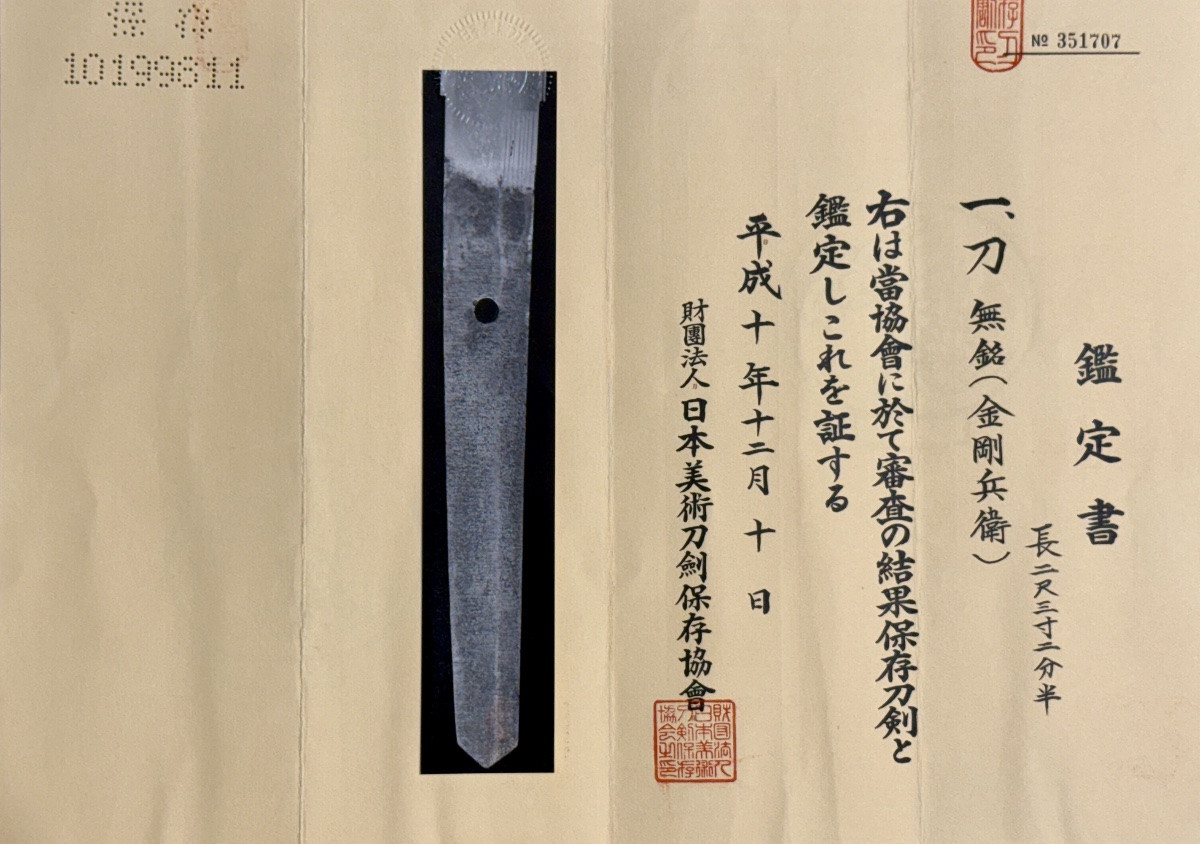 № 351707
鑑定書
長二尺三寸二分半
一、刀 無銘(金剛兵衛)
右は當協會に於て審査の結果保存刀剣と
鑑定しこれを証する
平成十年十二月十日
財團法人 日本美術刀劍保存協會
財団法人
日本美術
刀剣保存
協会之印
保存
10199811